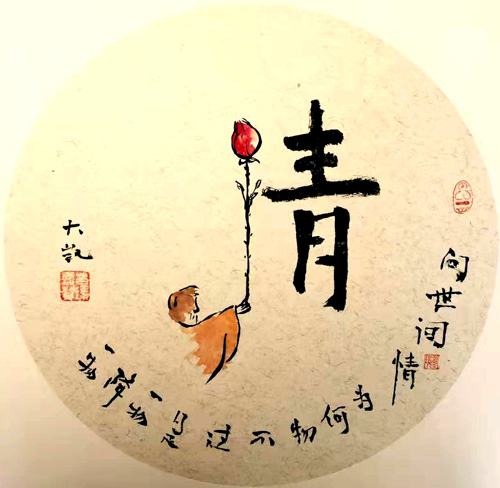 情
问世间情为何物不过是一物降一物
大凯